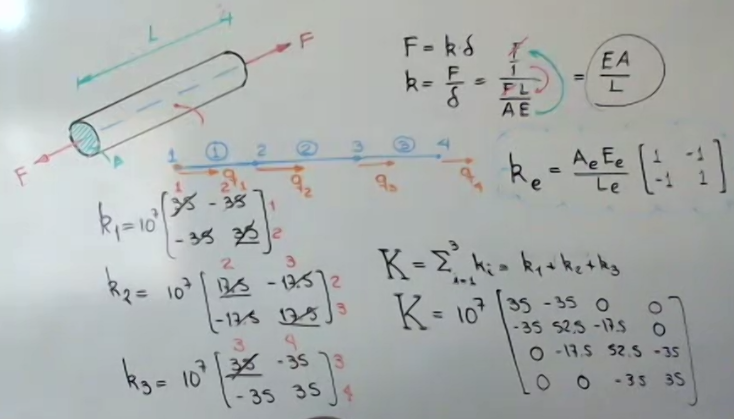 L
F
F
A
F = k δ
k = F/δ = (F/1)/(FL/AE) = EA/L
1 ① 2 ② 3 ③ 4
q1 q2 q3 q4
ke = AeEe/Le [1 -1
-1 1]
1 2
k1 = 10^7 [35 -35] 1
[-35 35] 2
2 3
k2 = 10^7 [17.5 -17.5] 2
[-17.5 17.5] 3
3 4
k3 = 10^7 [35 -35] 3
[-35 35] 4
K = Σ^3_{i=1} ki = k1 + k2 + k3
K = 10^7 [35 -35 0 0
-35 52.5 -17.5 0
0 -17.5 52.5 -35
0 0 -35 35]